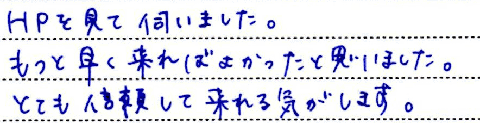 HPを見て伺いました。
もっと早く来ればよかったと思いました。
とても信頼して来れる気がします。